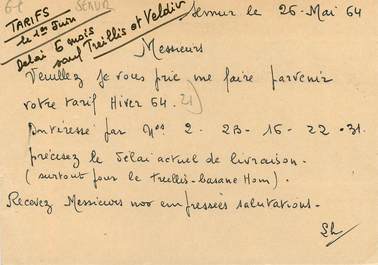 SEMUR
TARIFS
le 1er Juin
Delai 6 mois
sauf Treillis et Veldiv
Semur le 26 Mai 64
Messieurs
Veuillez je vous prie me faire parvenir
votre tarif Hiver 64.
Intéressé par Nos 2 - 2B - 16 - 22 - 31.
précesez le délai actuel de livraison.
(surtout pour le treillis - basane Hom).
Recevez Messieurs nos empressées salutations.